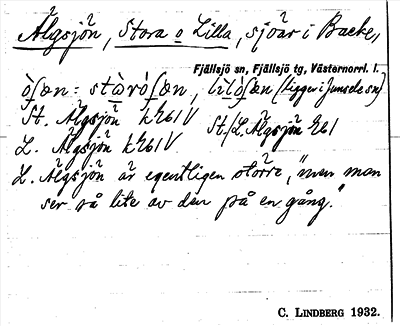 Älgsjön, Stora o Lilla, sjöar i Backe,
Fjällsjö sn, Fjällsjö tg, Västernorrl. l.
(ligger i Junsele sn)
St. Älgsjön k Ä61V St./L. Älgsjön Ä61
L. Älgsjön k Ä61V
L. Älgsjön är egentligen större, "men man
ser så lite av den på en gång."
C. LINDBERG 1932.